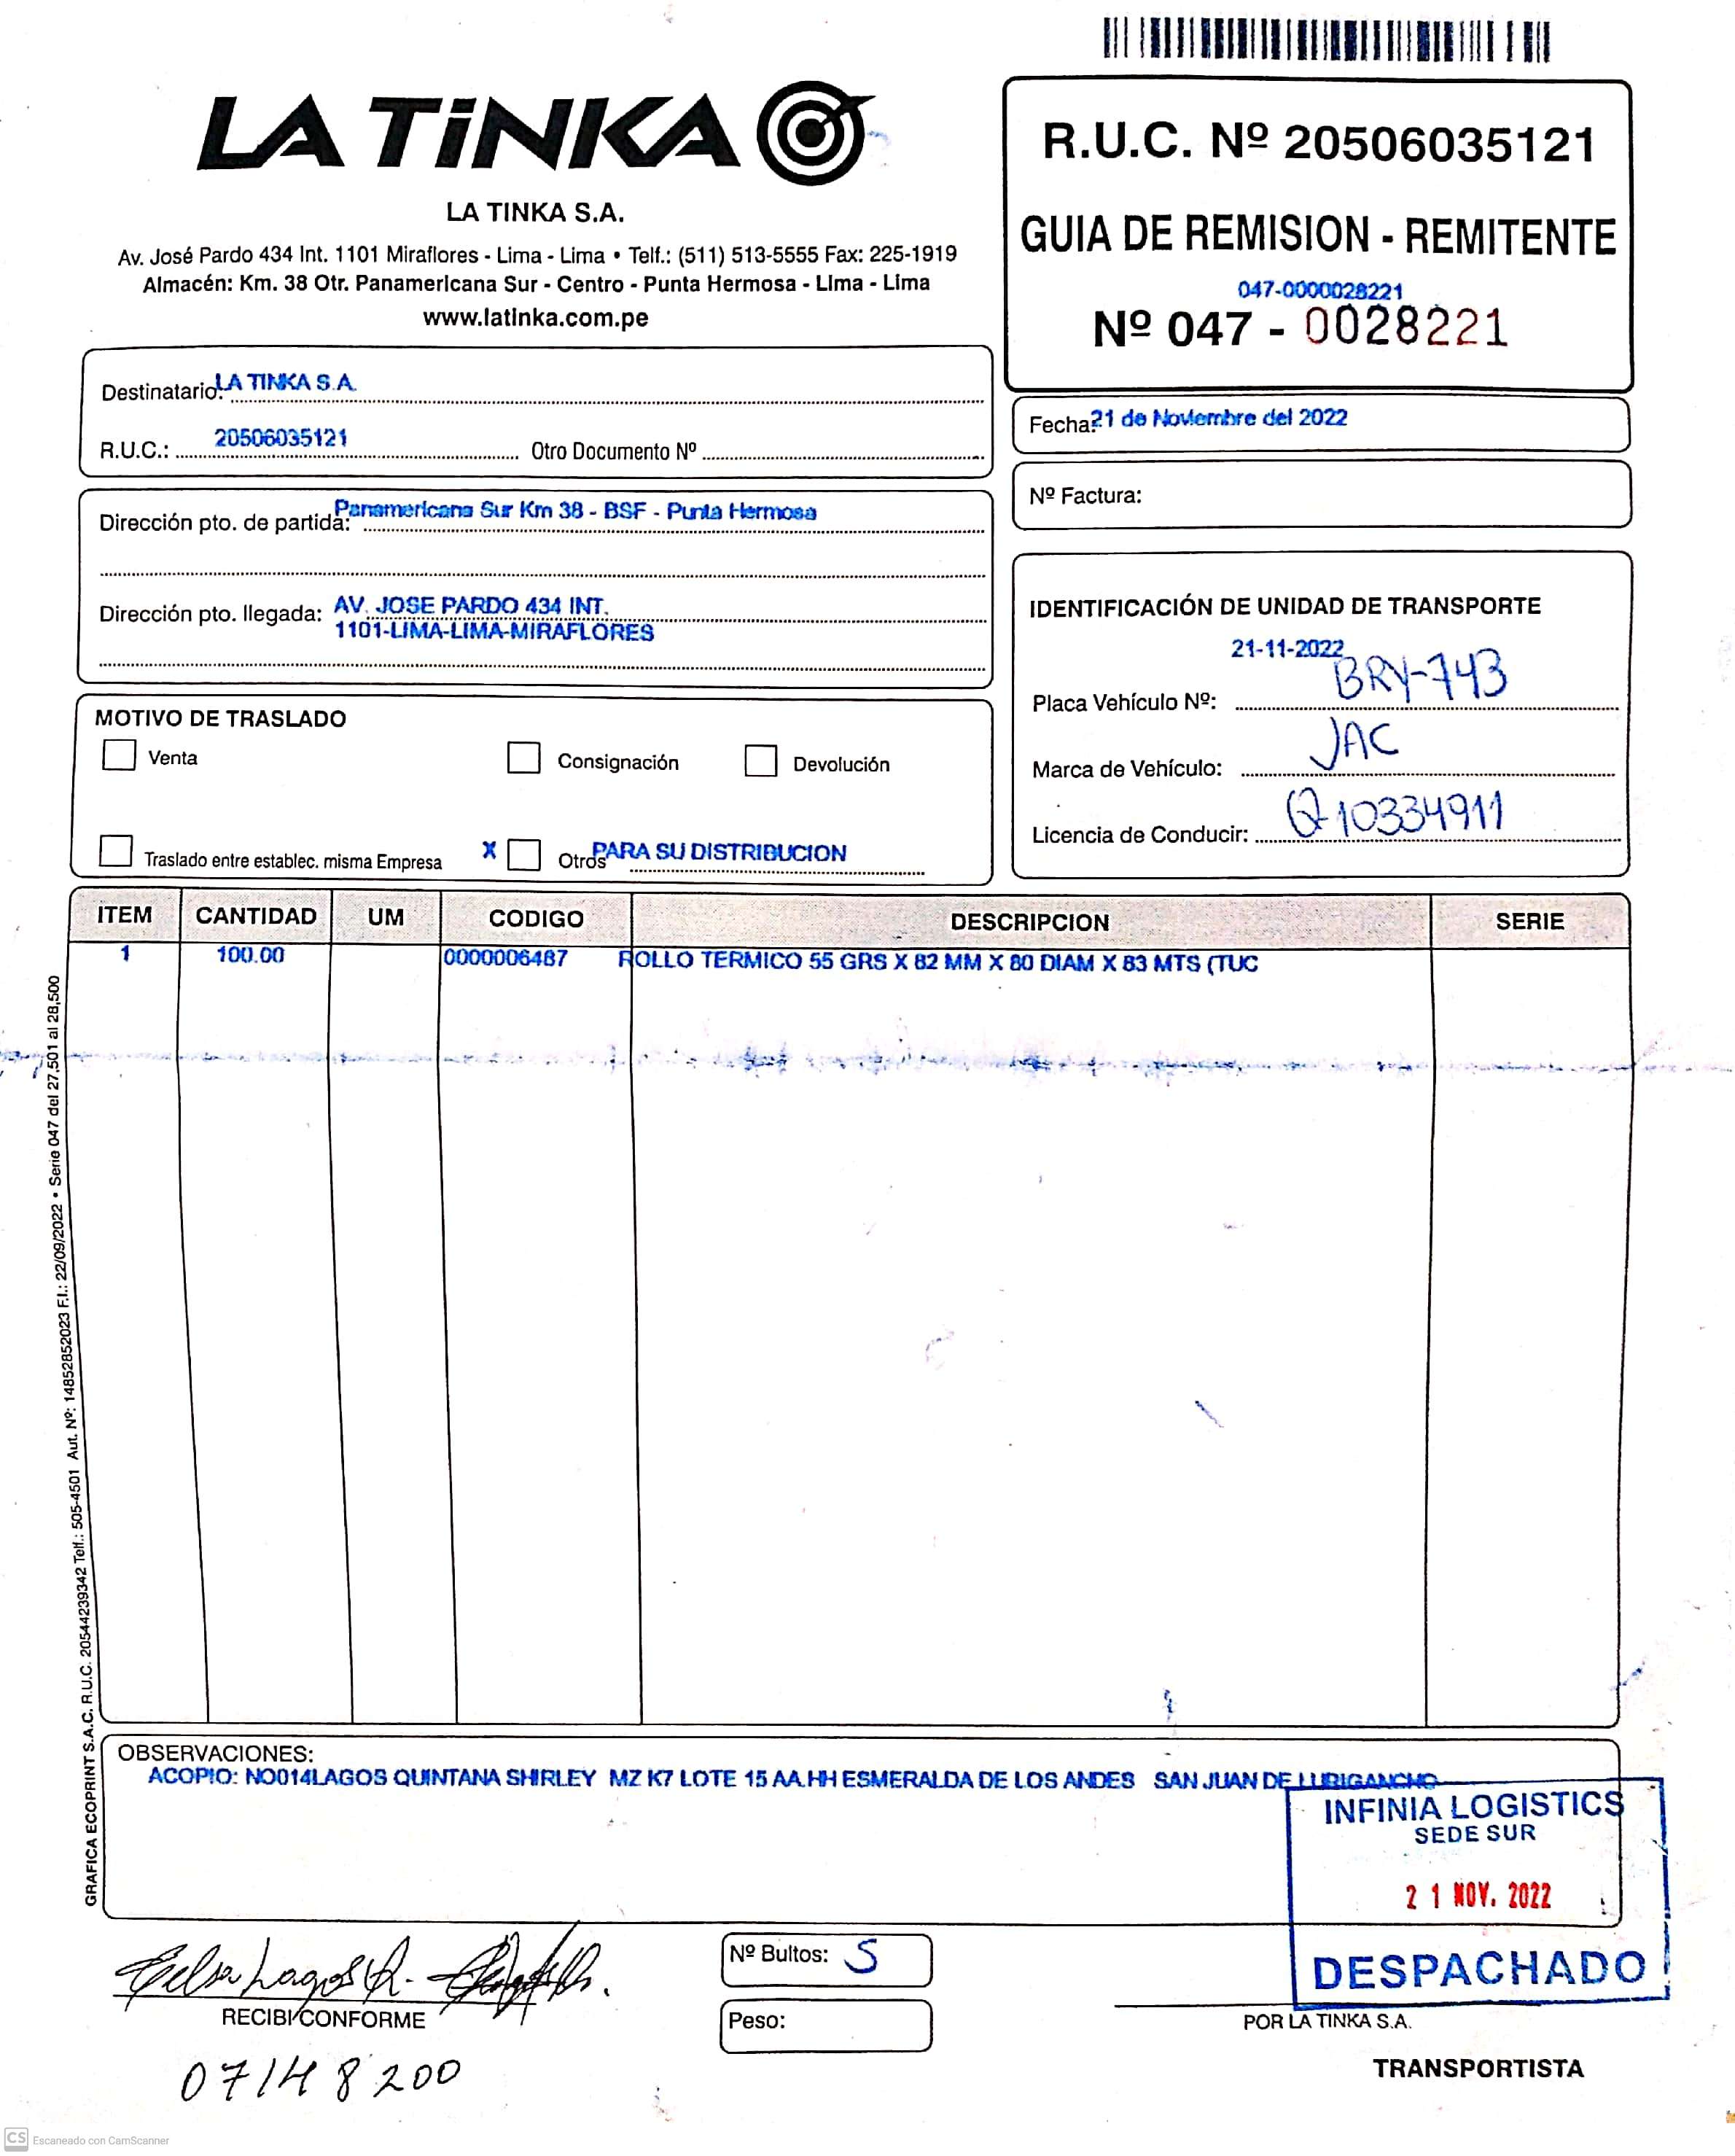 LA TiNKA
LA TINKA S.A.
Av. José Pardo 434 Int. 1101 Miraflores - Lima - Lima • Telf.: (511) 513-5555 Fax: 225-1919
Almacén: Km. 38 Otr. Panamericana Sur - Centro - Punta Hermosa - Lima - Lima
www.latinka.com.pe
R.U.C. Nº 20506035121
GUIA DE REMISION - REMITENTE
047-0000028221
Nº 047 - 0028221
Destinatario: LA TINKA S.A.
R.U.C.: 20506035121 Otro Documento Nº
Fecha: 21 de Noviembre del 2022
Nº Factura:
Dirección pto. de partida: Panamericana Sur Km 38 - BSF - Punta Hermosa
Dirección pto. llegada: AV. JOSE PARDO 434 INT.
1101-LIMA-LIMA-MIRAFLORES
IDENTIFICACIÓN DE UNIDAD DE TRANSPORTE
21-11-2022
Placa Vehículo Nº: BRY-743
Marca de Vehículo: JAC
Licencia de Conducir: Q10334911
MOTIVO DE TRASLADO
Venta Consignación Devolución
Traslado entre establec. misma Empresa X Otros PARA SU DISTRIBUCION
ITEM CANTIDAD UM CODIGO DESCRIPCION SERIE
1 100.00 0000006487 ROLLO TERMICO 55 GRS X 82 MM X 80 DIAM X 83 MTS (TUC
GRAFICA ECOPRINT S.A.C. R.U.C. 20544239342 Telf.: 505-4501 Aut. Nº: 14852852023 F.I.: 22/09/2022 • Serie 047 del 27,501 al 28,500
OBSERVACIONES:
ACOPIO: NO014LAGOS QUINTANA SHIRLEY MZ K7 LOTE 15 AA.HH ESMERALDA DE LOS ANDES SAN JUAN DE LURIGANCHO
INFINIA LOGISTICS
SEDE SUR
21 NOV. 2022
DESPACHADO
Lagos
RECIBI CONFORME
07148200
Nº Bultos: 5
Peso:
POR LA TINKA S.A.
TRANSPORTISTA
CS Escaneado con CamScanner